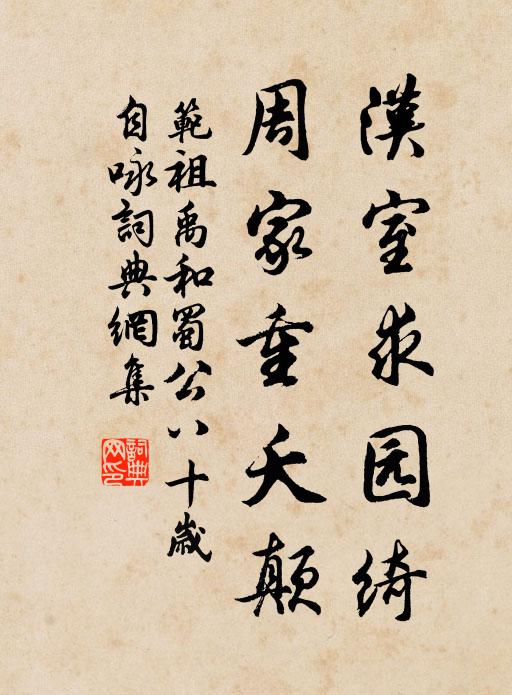 漢室求园綺
周家重夭顛
範祖禹和蜀公八十歲
自咏詞典網集
詞典网印